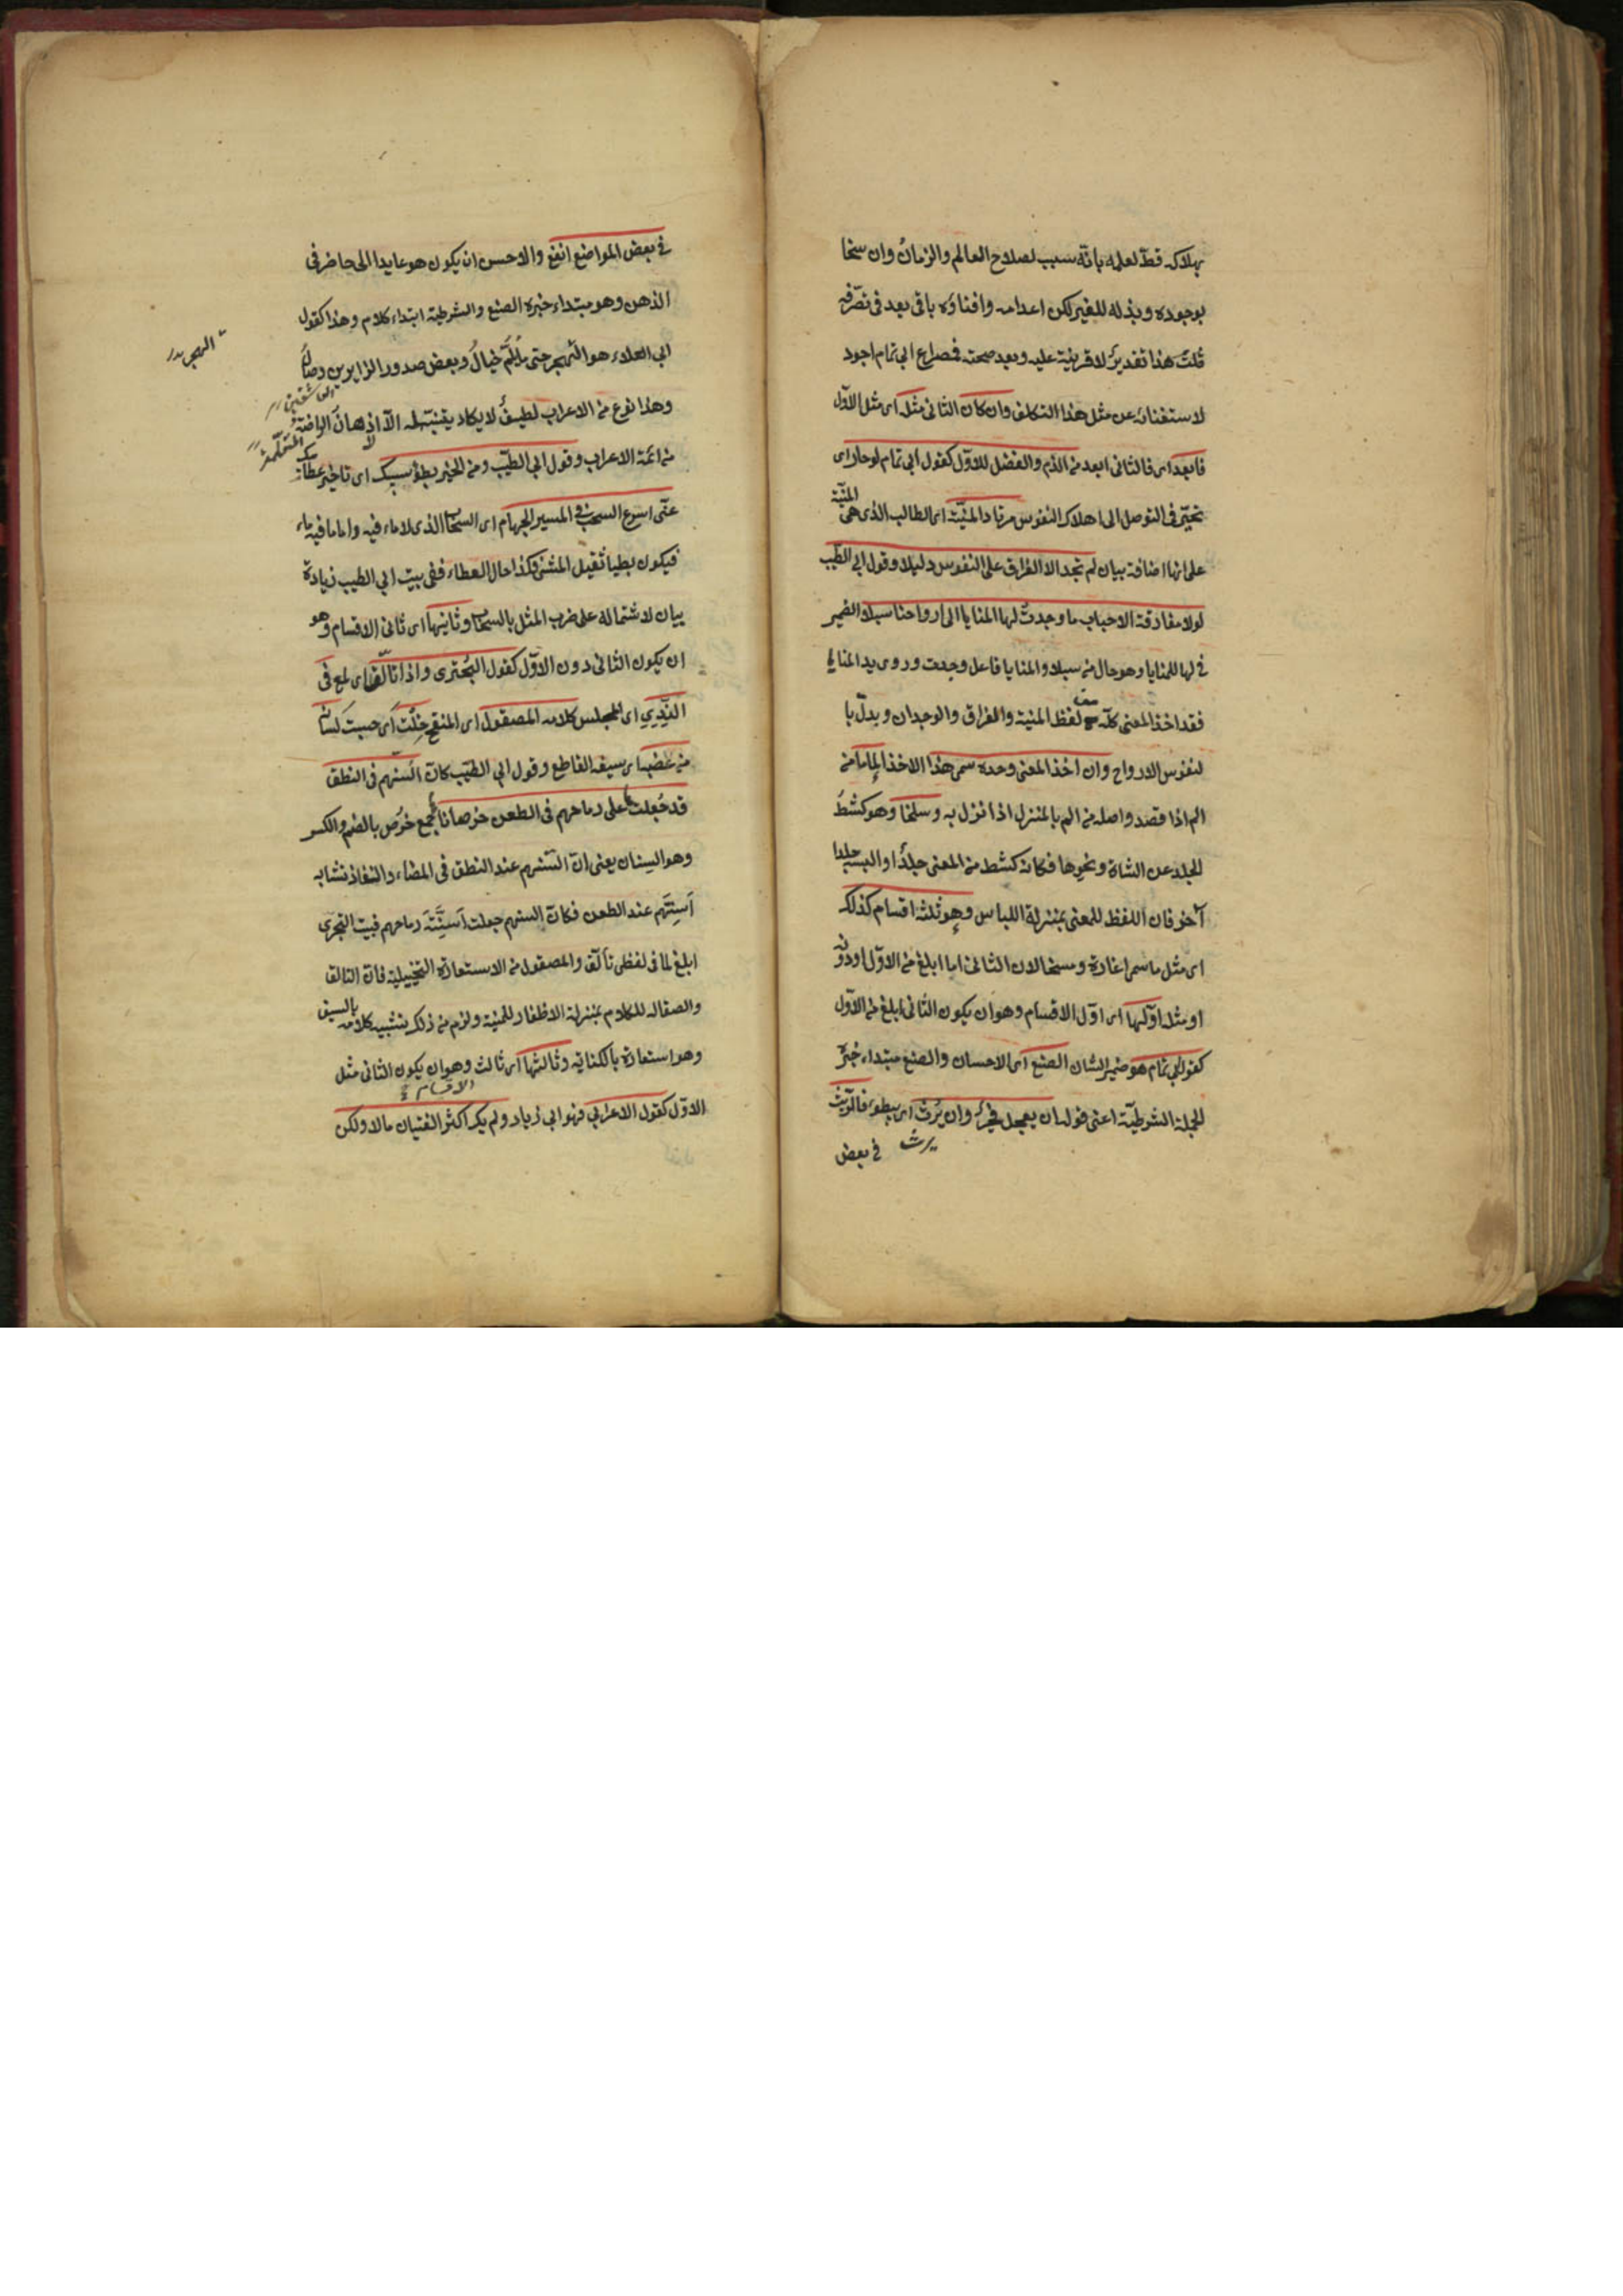 بهلاكه قط لعلمه بانه سبب لصلاح العالم والزمان وان سخا
بوجوده وبذله للغير لكن اعدامه وافناؤه باق بعد فى تصرفه
قلت هذا تقدير لا قرينة عليه وبعد صحته فمصراع ابى تمام اجود
لاستغنائه عن مثل هذا التكلف وان كان الثانى مثله اى مثل الاول
فابعد اى فالثانى ابعد من الذم والفضل للاول كقول ابى تمام لو حار اى
تحيّر فى التوصل الى اهلاك النفوس مرتاد المنيّة اى الطالب الذى هى المنيّة
على انها اضافة بيان لم تجد الا الفراق على النفوس دليلا وقول ابى الطيب
لولا مفارقة الاحباب ما وجدت لها المنايا الى ارواحنا سبلا والضمير
فى لها للمنايا وهو حال من سبلا والمنايا فاعل وجدت وروى يد المنايا
فقد اخذ المعنى كله مع لفظ المنية والفراق والوجدان وبدّل با
لنفوس الارواح وان اخذ المعنى وحده سمى هذا الاخذ إلماما من
الم اذا قصد واصله من الم بالمنزل اذا نزل به وسلخا وهو كشط
الجلد عن الشاة ونحوها فكانه كشط من المعنى جلدا والبسه جلدا
آخر فان اللفظ للمعنى بمنزلة اللباس وهو ثلثة اقسام كذلك
اى مثل ما سمى اغارة ومسخا لان الثانى اما ابلغ من الاول او دونه
او مثله اوّلها اى اول الاقسام وهو ان يكون الثانى ابلغ من الاول
كقول ابى تمام هو ضمير الشان الصنع اى الاحسان والصنع مبتداء خبره
الجملة الشرطيّة اعنى قوله ان يعجل فخير وان يرث اى يبطؤ فالريث
يرث
فى بعض
فى بعض المواضع انفع والاحسن ان يكون هو عايدا الى حاضر فى
الذهن وهو مبتداء خبره الصنع والشرطية ابتداء كلام وهذا كقول
ابى العلاء هو الهجر حتى ما يلمّ خيال وبعض صدود الزايرين وصال
الهجر
العاشقين
وهذا نوع من الاعراب لطيف لا يكاد يتنبّه له الا اذهان الراضة
من ائمة الاعراب وقول ابى الطيّب ومن الخير بطؤ سيبك اى تاخير عطائك
عنّى اسرع السحب فى المسير الجهام اى السحاب الذى لا ماء فيه واما ما فيه ماء
فيكون بطيا ثقيل المشى فكذا حال العطاء ففى بيت ابى الطيب زيادة
بيان لاشتماله على ضرب المثل بالسحاب وثانيها اى ثانى الاقسام وهو
ان يكون الثانى دون الاوّل كقول البحترى واذا تألّق اى لمع فى
النّدىّ اى المجلس كلامه المصقول اى المنقح خلت اى حسبت لسانه
من عضبه اى سيفه القاطع وقول ابى الطيّب كان السنهم فى النطق
قد جعلت على رماحهم فى الطعن خرصانا جمع خرص بالضم والكسر
وهو السنان يعنى ان السنهم عند النطق فى المضاء والنفاذ تشابه
اسنّتهم عند الطعن فكان السنهم جعلت اسنّة رماحهم فبيت البحترى
ابلغ لما فى لفظى تألّق والمصقول من الاستعارة التخييلية فان التالق
والصقاله للكلام بمنزلة الاظفار للمنية ولزم من ذلك تشبيه كلامه بالسيف
وهو استعارة بالكناية وثالثها اى ثالث وهو ان يكون الثانى مثل
الاقسام
الاوّل كقول الاعرابى فهو ابى زياد ولم يك اكثر الفتيان مالا ولكن